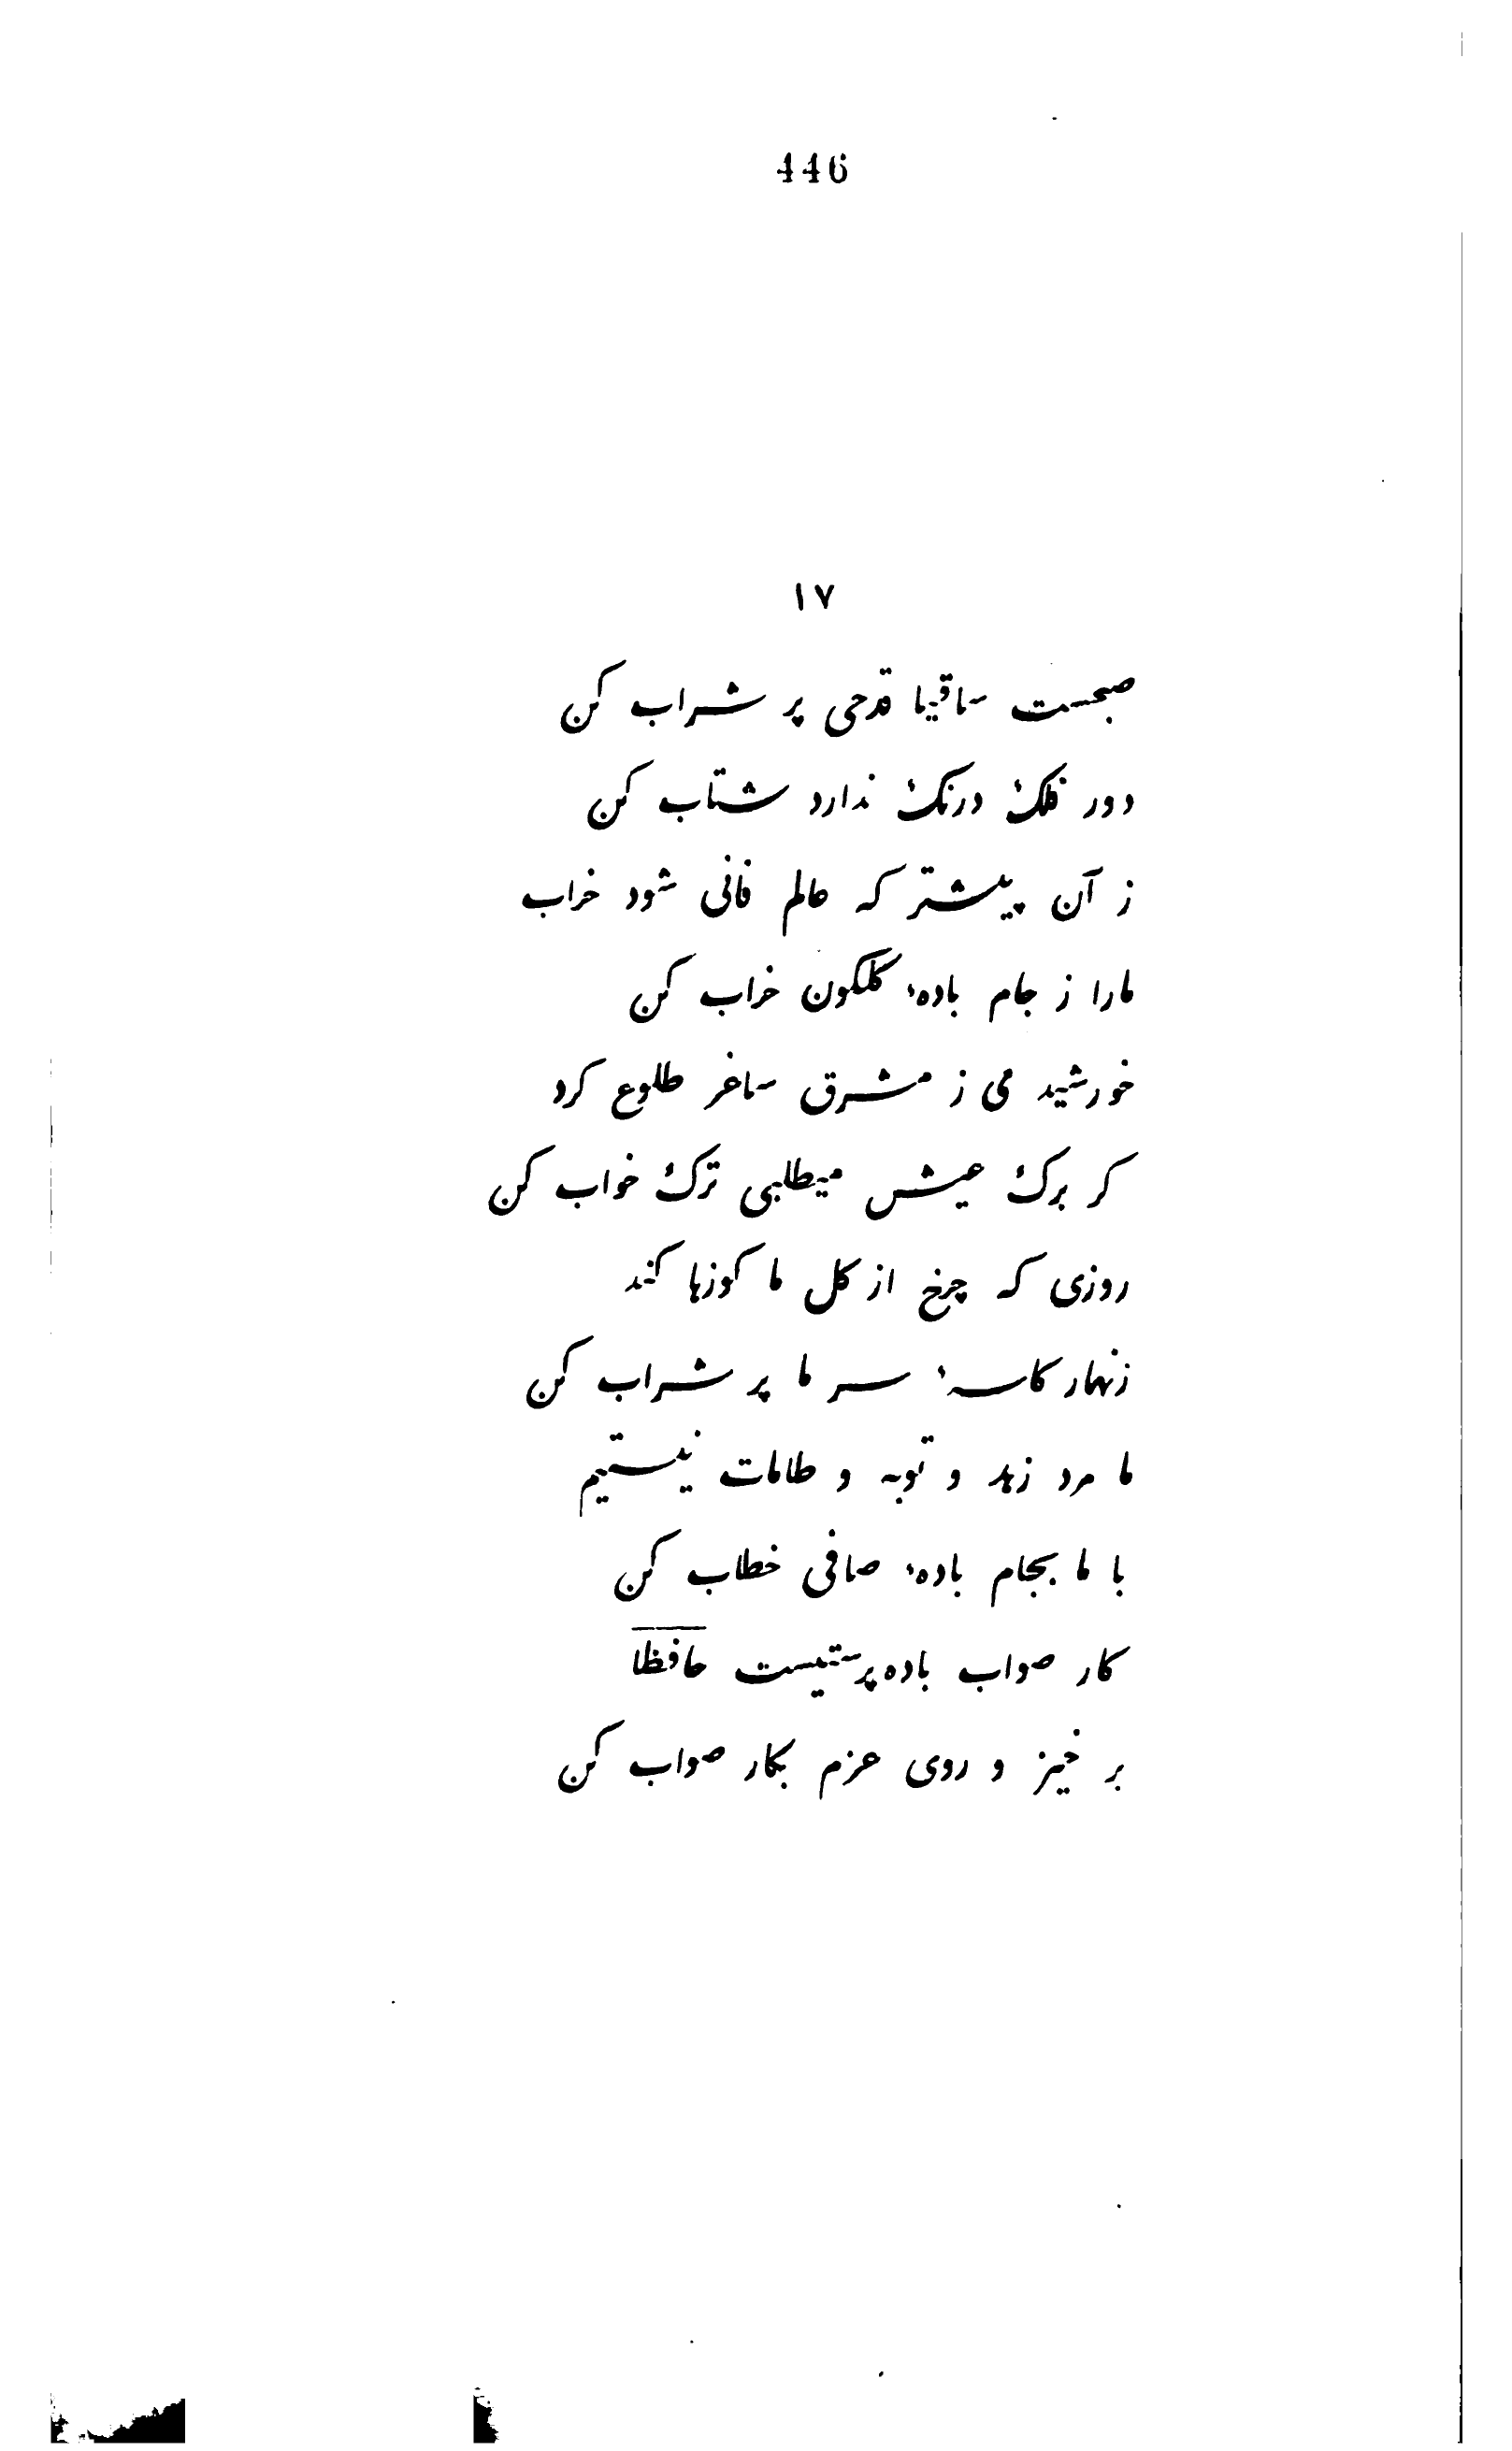 446
١٧
صبحست ساقیا قدحی پر شراب کن
دور فلک درنک ندارد شتاب کن
ز آن پیشتر که عالم فانی شود خراب
مارا ز جام بادهٔ کلکون خراب کن
خورشید می ز مشرق ساغر طلوع کرد
کر برک عیش میطلبی ترک خواب کن
روزی که چرخ از کل ما کوزها کند
زنهار کاسهٔ سر ما پر شراب کن
ما مرد زهد و توبه و طامات نیستیم
با ما بجام بادهٔ صافی خطاب کن
کار صواب باده پرستیست حافظا
بر خیز و روی عزم بکار صواب کن